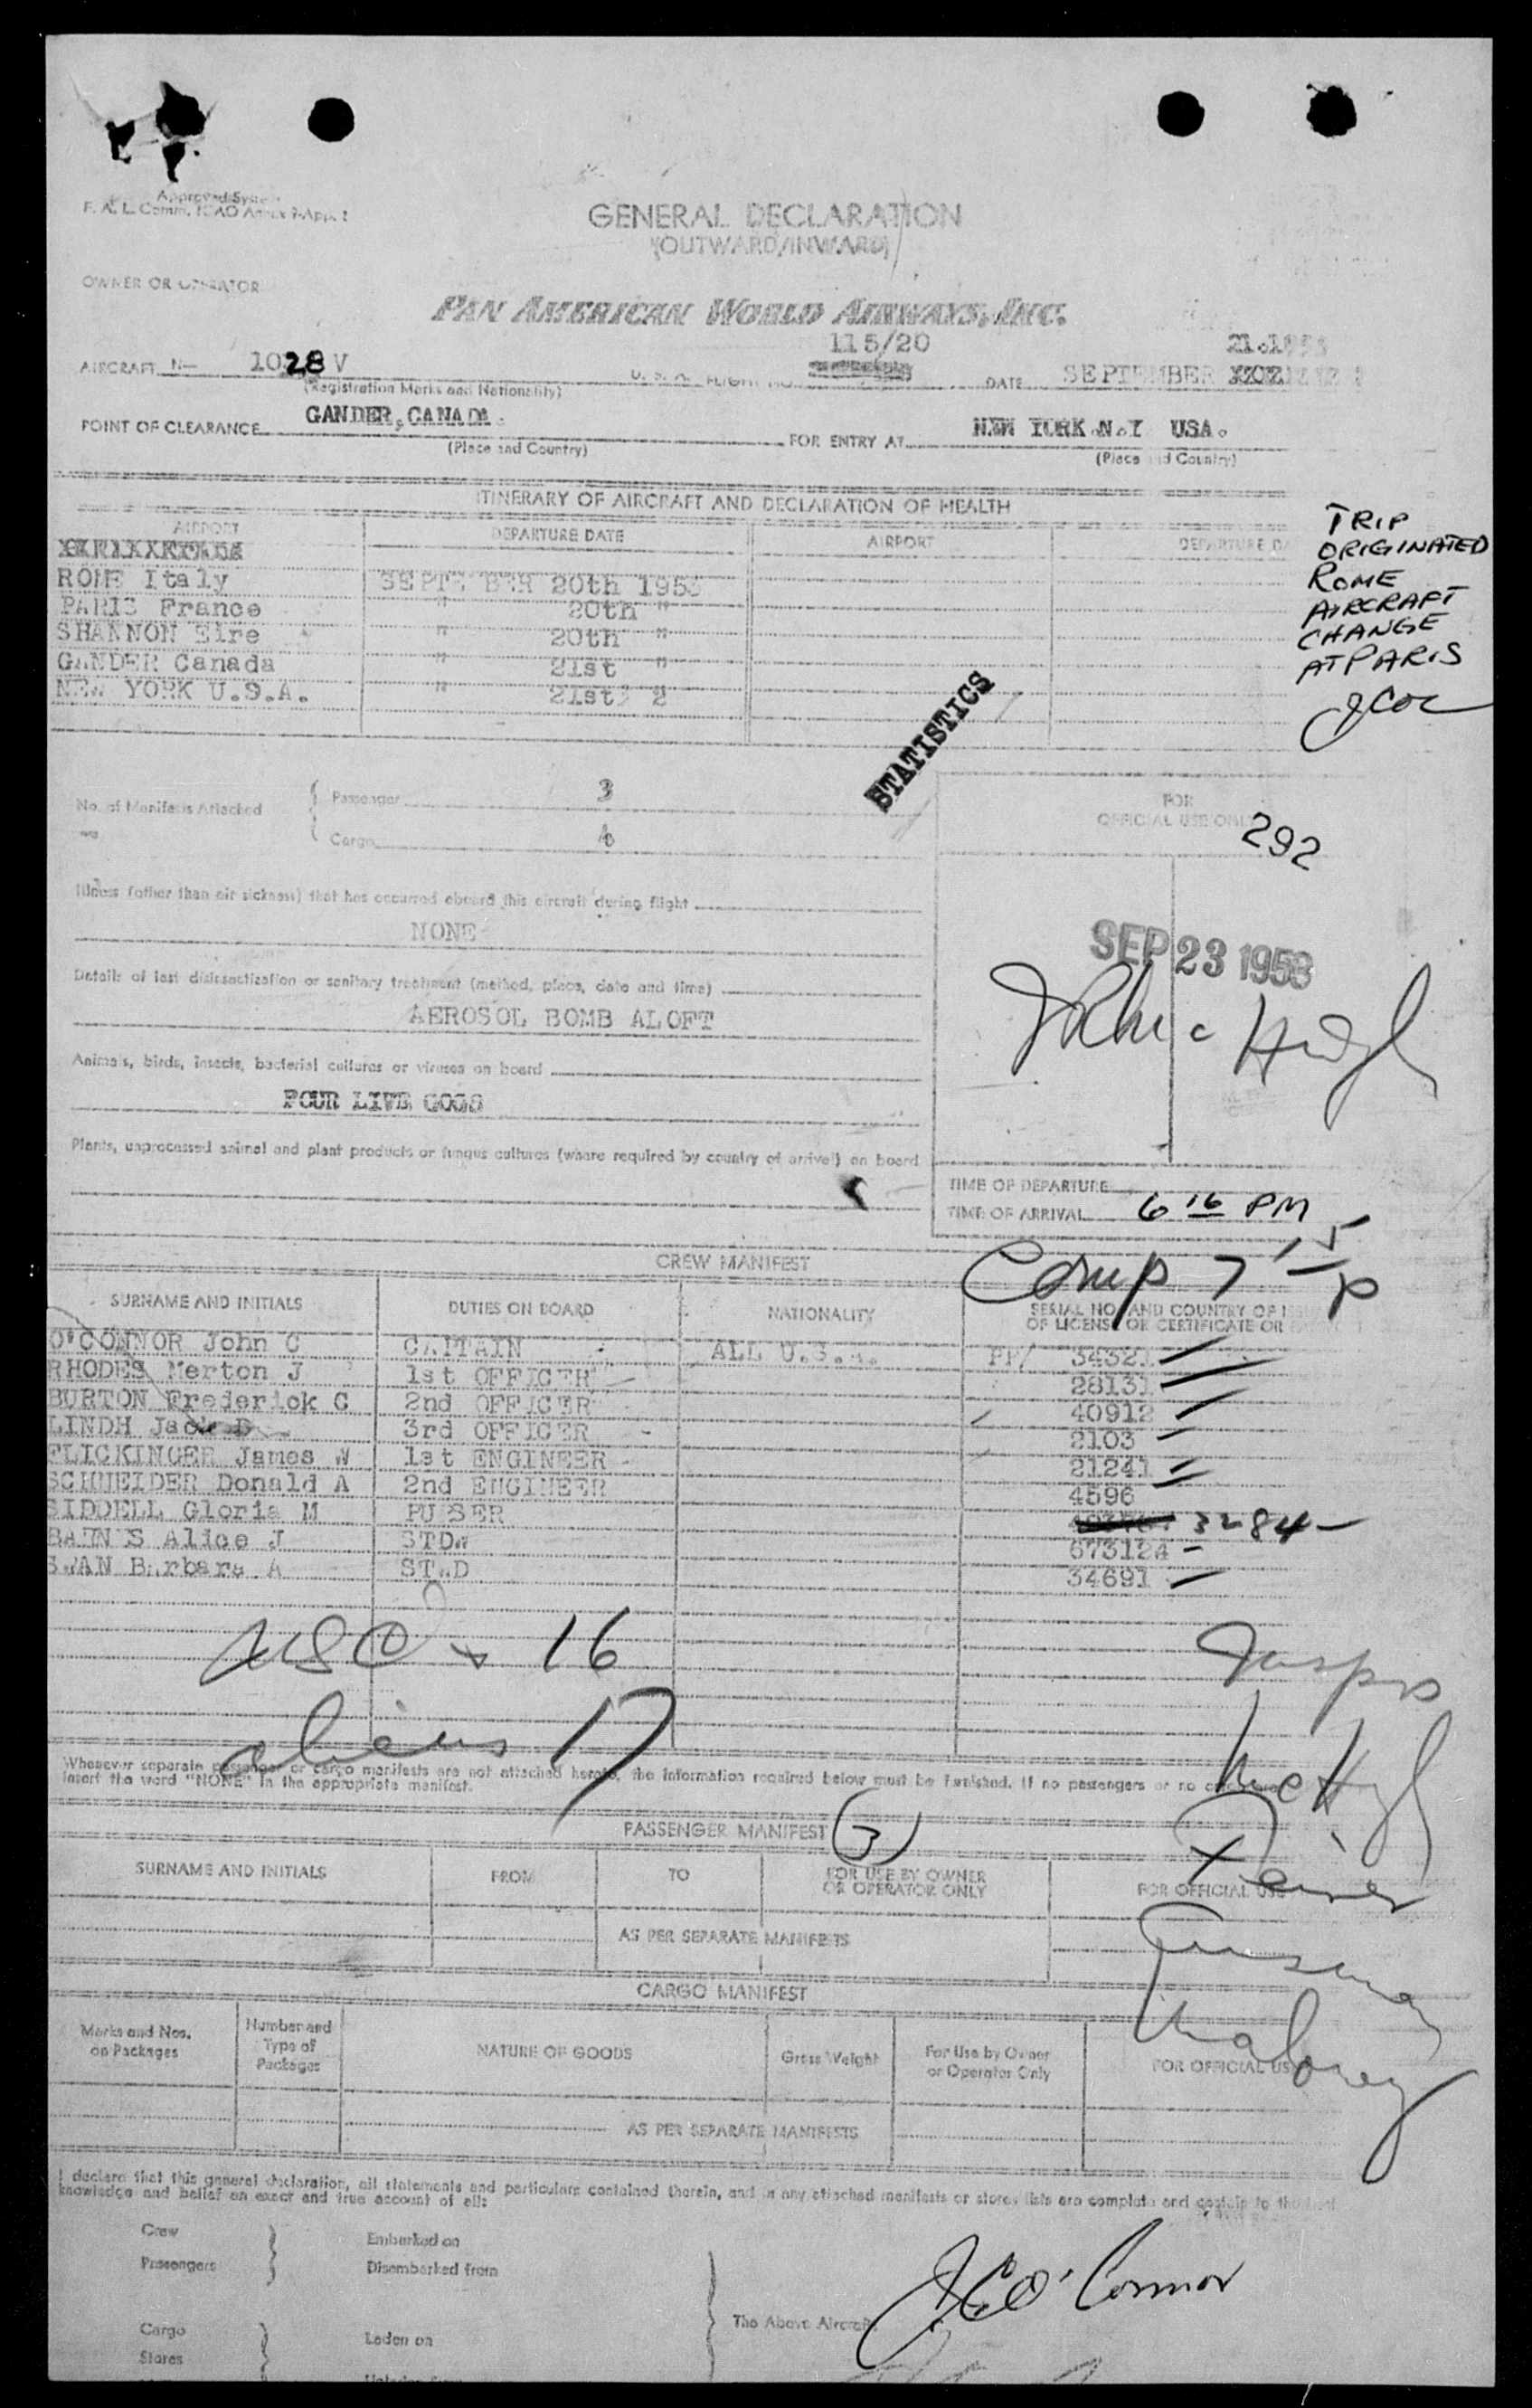 Approved System
F. A. L. Comm. ICAO Annex 9-App. 1
GENERAL DECLARATION
(OUTWARD/INWARD)
OWNER OR OPERATOR
PAN AMERICAN WORLD AIRWAYS, INC.
AIRCRAFT N— 1028V U. S. A. FLIGHT NO. 115/20 DATE SEPTEMBER 21.195
(Registration Marks and Nationality)
POINT OF CLEARANCE GANDER, CANADA. FOR ENTRY AT NEW YORK.N.Y USA.
(Place and Country) (Place and Country)
ITINERARY OF AIRCRAFT AND DECLARATION OF HEALTH
AIRPORT DEPARTURE DATE AIRPORT DEPARTURE DA
ROME Italy SEPTEMBER 20th 195
PARIS France " 20th "
SHANNON Eire " 20th "
GANDER Canada " 21st "
NEW YORK U.S.A. " 21st 2
TRIP
ORIGINATED
ROME
AIRCRAFT
CHANGE
AT PARIS
STATISTICS
No. of Manifests Attached
Passenger 3
Cargo
FOR
OFFICIAL USE ONLY
292
Illness (other than air sickness) that has occurred aboard this aircraft during flight
NONE
SEP 23 1953
Details of last disinsectization or sanitary treatment (method, place, date and time)
AEROSOL BOMB ALOFT
Animals, birds, insects, bacterial cultures or viruses on board
FOUR LIVE GOGS
Plants, unprocessed animal and plant products or fungus cultures (where required by country of arrival) on board
TIME OF DEPARTURE
TIME OF ARRIVAL 6 16 PM
Comp 7 15 P
CREW MANIFEST
SURNAME AND INITIALS DUTIES ON BOARD NATIONALITY SERIAL NO. AND COUNTRY OF ISSUE
OF LICENSE OR CERTIFICATE OR
O'CONNOR John C CAPTAIN ALL U.S.A. PP/ 34321
RHODES Merton J 1st OFFICER 28131
BURTON Frederick G 2nd OFFICER 40912
LINDH Jack D 3rd OFFICER 2103
FLICKINGER James W 1st ENGINEER 21241
SCHNEIDER Donald A 2nd ENGINEER 4596
SIDDELL Gloria M PURSER 3284
Alice J STDW 673124
SWAN Barbara A STWD 34691
USC 16
aliens 17
Whenever separate passenger or cargo manifests are not attached hereto, the information required below must be furnished. If no passengers or no cargo
insert the word "NONE" in the appropriate manifest.
PASSENGER MANIFEST (3)
SURNAME AND INITIALS FROM TO FOR USE BY OWNER
OR OPERATOR ONLY FOR OFFICIAL USE
AS PER SEPARATE MANIFESTS
CARGO MANIFEST
Marks and Nos.
on Packages
Number and
Type of
Packages
NATURE OF GOODS
Gross Weight
For Use by Owner
or Operator Only
FOR OFFICIAL US
AS PER SEPARATE MANIFESTS
I declare that this general declaration, all statements and particulars contained therein, and in any attached manifests or stores lists are complete and contain to the best
knowledge and belief an exact and true account of all:
Crew
Passengers
Embarked on
Disembarked from
Cargo
Stores
Laden on
The Above Aircraft
J C O'Connor